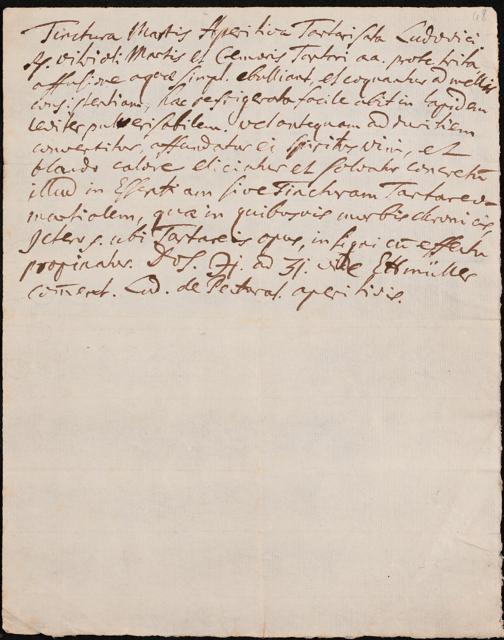 48
Tinctura Martis Aperitiva Tartarisata Ludovici
℞. vitrioli Martis et Cremoris Tartari aa. probe trita
affusione aquæ simpl. ebulliant, et coquantur ad mellis
consistentiam, hac refrigerata facile abit in lapidem
leviter pulverisabilem, vel antequam ad duritiem
convertitur, affundatur ei spiritus vini, et
blando calore eliciatur et solvatur concretũ
illud in Essentiam sive Tincturam Tartareo-
martialem, quæ in quibusvis morbis chronicis,
Ictero, ubi Tartareis opus, insigni cũ effectu
propinatur. Dos. ℈j. ad ʒj. vide Ettmüller
com̃ent. Lud. de Pectoral. aperitivis.